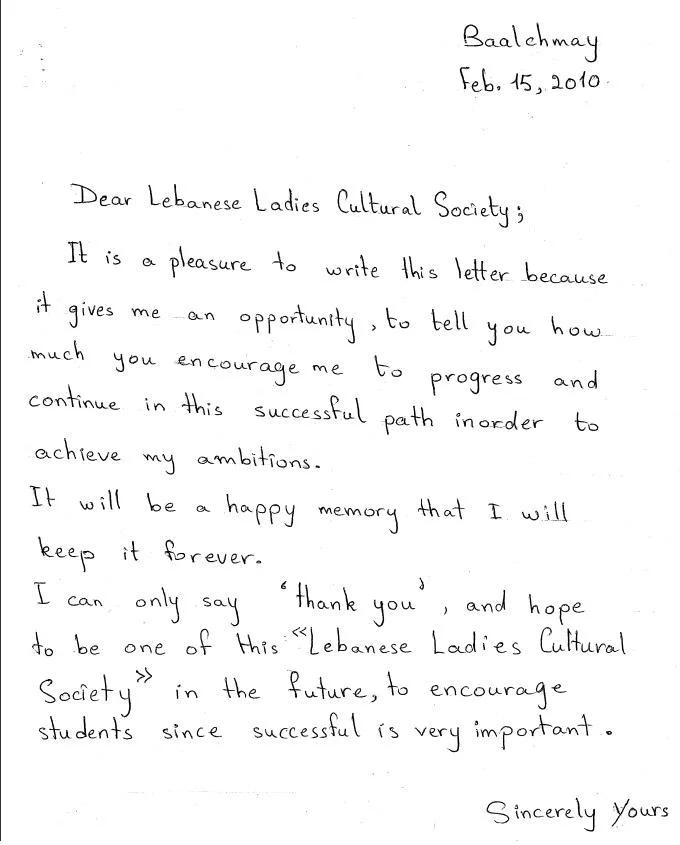 Baalchmay
Feb. 15, 2010.
Dear Lebanese Ladies Cultural Society;
It is a pleasure to write this letter because
it gives me an opportunity, to tell you how
much you encourage me to progress and
continue in this successful path inorder to
achieve my ambitions.
It will be a happy memory that I will
keep it forever.
I can only say ‘thank you’, and hope
to be one of this «Lebanese Ladies Cultural
Society» in the future, to encourage
students since successful is very important.
Sincerely Yours